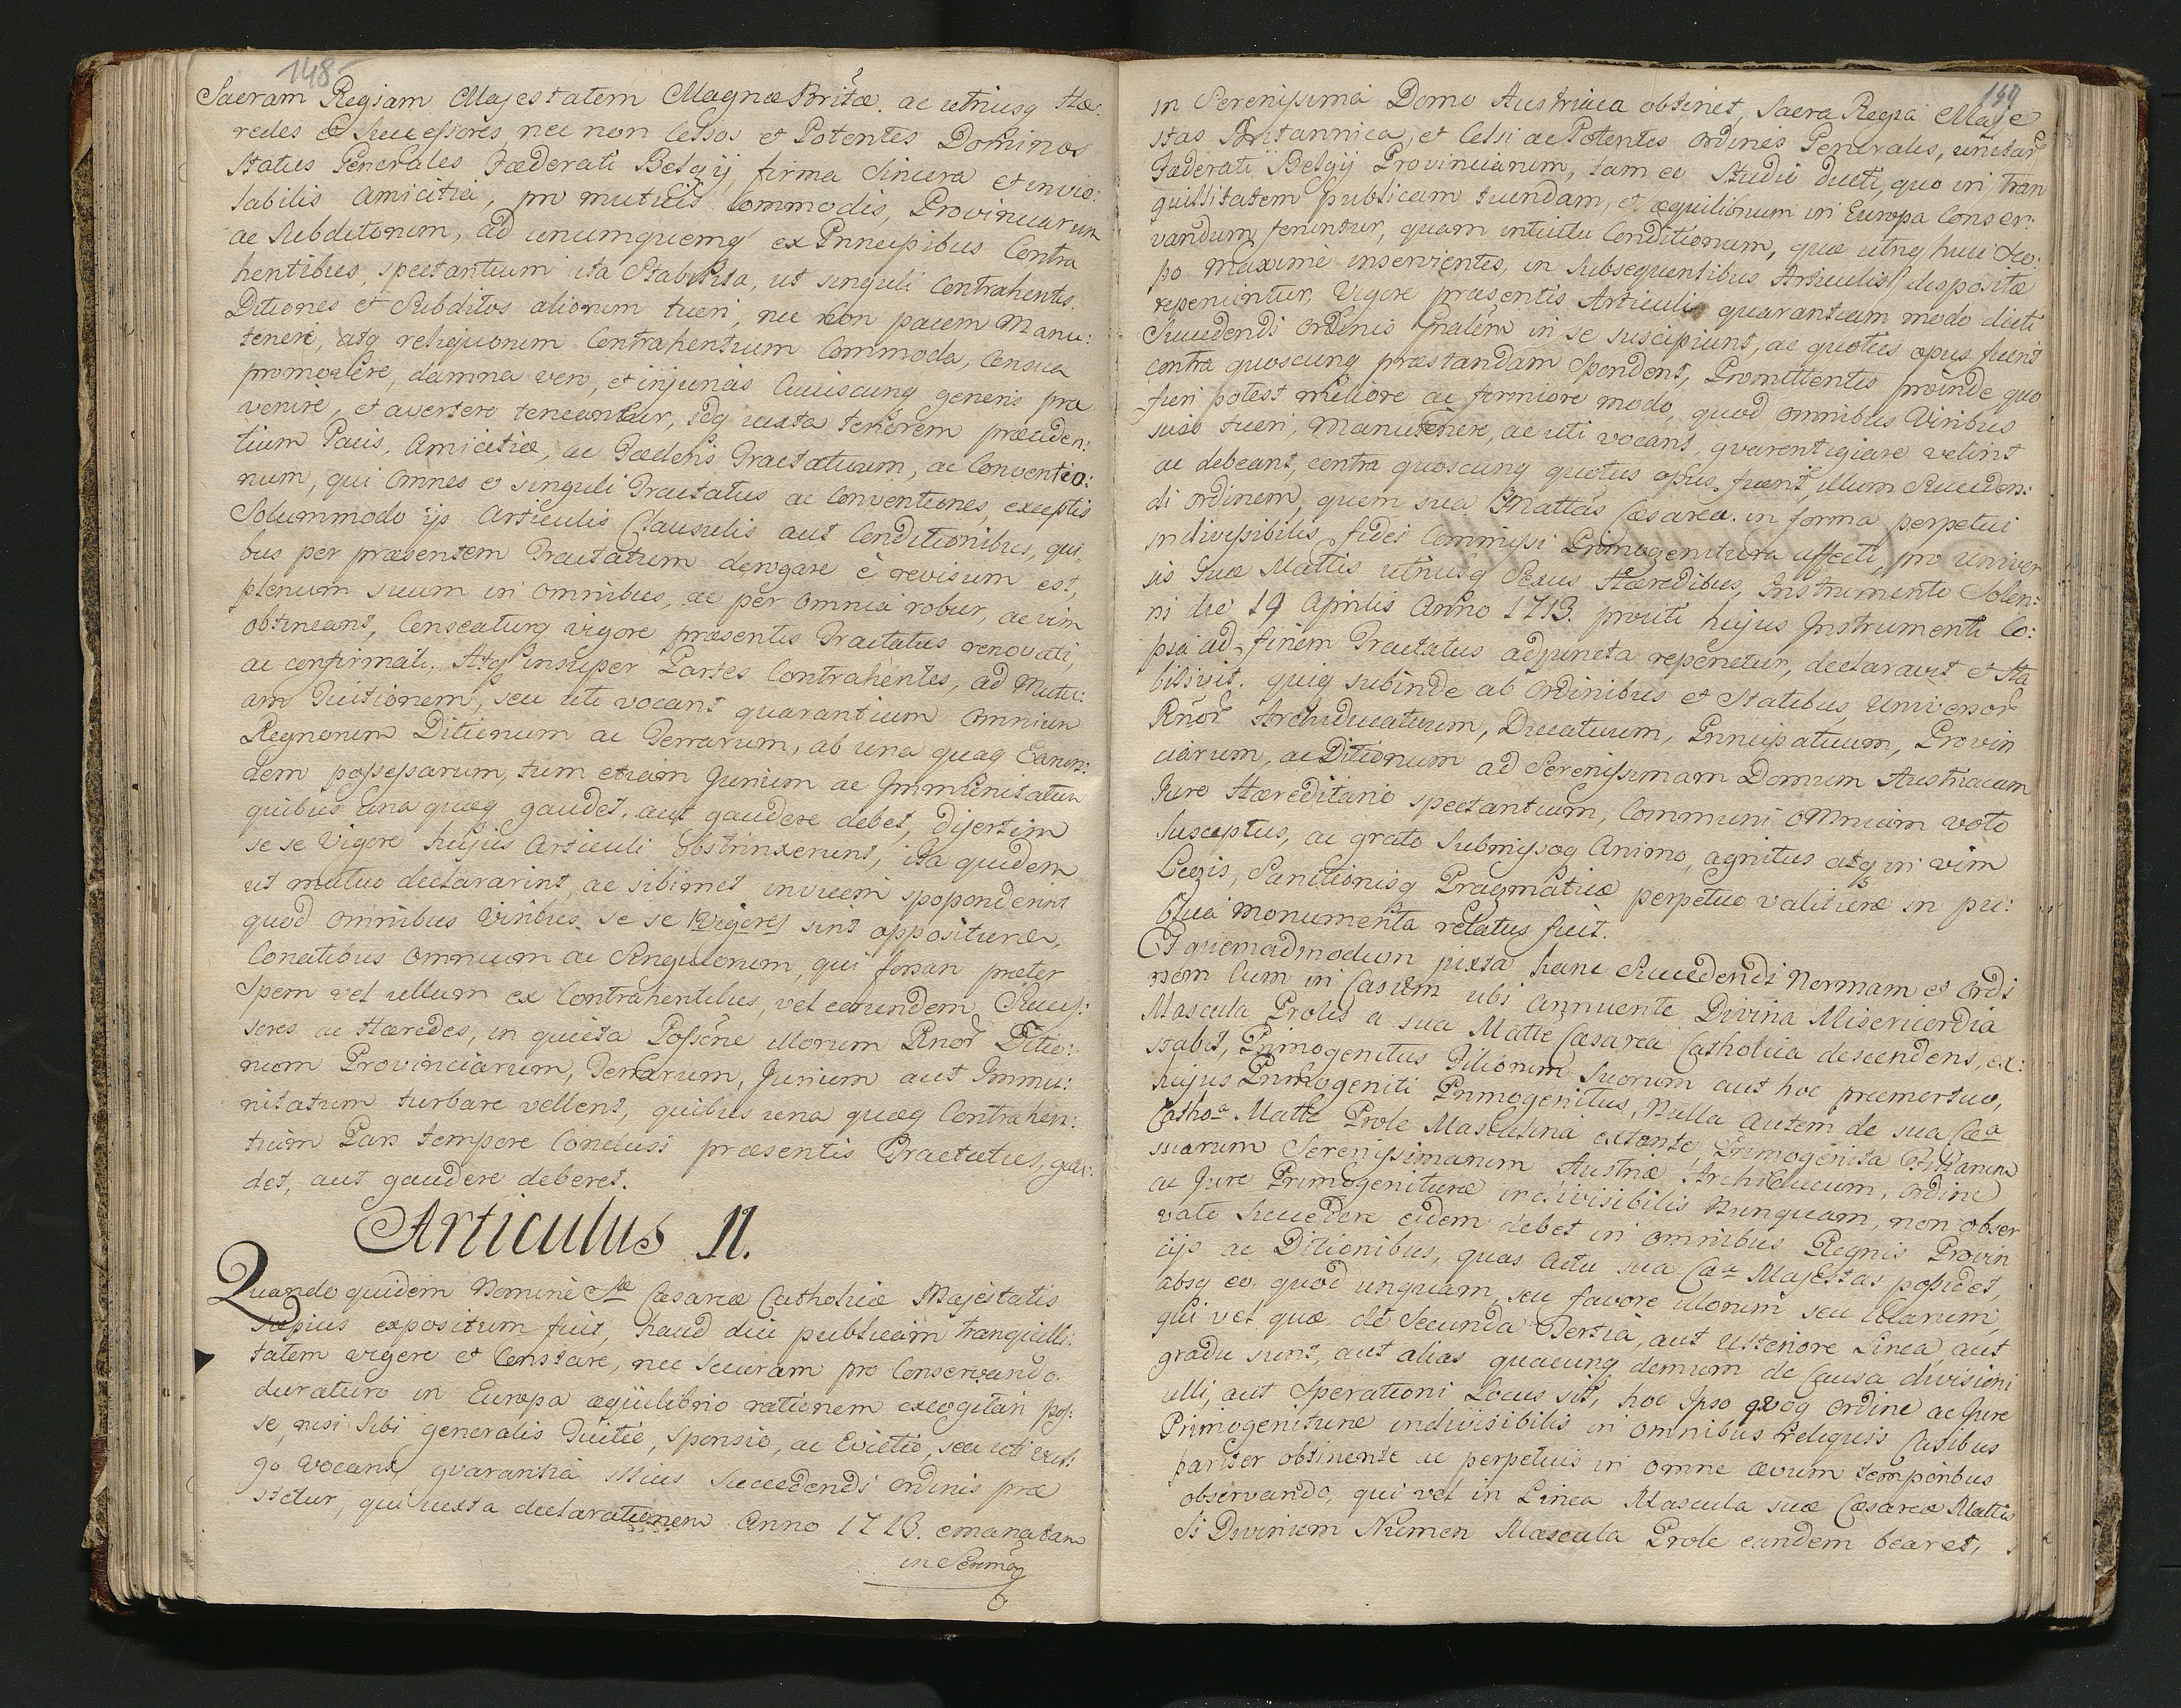 148
Sacram Regiam Majestatem Magnæ Britæ. ac utriusq Hæ:
redes et Successores nec non Celsos et Potentes Dominos
Status Generales Fæderati Belgij, firma Sincera et invio:
labilis amicitia, pro mutuis Commodis, Provinciarum
ac Subditorum, ad unumquemq ex Principibus Contra
hentibus, spectantium ita Stabilita, ut singuli Contrahentes
Ditiones et Subditos aliorum tueri, nec non pacem Manu:
tenere, atq reliquorum Contrahentium Commoda, Censua
promovere, damna vero, et injurias Cuiuscunq generis præ
venire, et avertere teneantur, idq iuxta tenorem præceden:
tium Pacis, Amicitiæ, ac Fœderis Tractatuum, ac Conventio:
num, qui omnes et singuli Tractatus ac Conventiones exceptis
Solummodo ijs Articulis Clausulis aut Conditionibus, qui
bus per præsentem Tractatum derogare è revisum est,
plenum suum in omnibus, ac per omnia robur, ac vim
obtineant, Censeaturq vigore præsentis Tractatus renovati,
ac confirmati. Atq insuper Partes Contrahentes, ad Mutu:
am Tuitionem, seu uti vocant quarantium omnium
Regnorum Ditionum ac Terrarum, ab una quaq Earun:
dem possessarum, tum etiam Jurium ac Immunitatum
quibus una quæq gaudet, aut gaudere debet, disertim
se se Vigore hujus Articuli obstrinxerunt, ita quidem
ut mutuo declararint, ac sibimet invicem spoponderint
quod omnibus Viribus se se Vigore sint oppositura,
Conatibus omnium ac Singulorum, qui forsan præter
Spem vel ullum ex Contrahentibus, vel eorundem Succes:
sores ac Hæredes, in quieta Possõne illorum Rnor Ditio:
num Provinciarum, Terrarum, Jurium aut Immu:
nitatum turbare vellent, quibus una quæq Contrahen:
tium Pars tempore Conclusi præsentis Tractatus, gau:
det, aut gaudere deberet.
Articulus II.
Quando quidem Nomine Sæ Cæsareæ Catholicæ Majestatis
sæpius expositum fuit, haud diu publicam tranquilli:
tatem vigere et Constare, nec Securam pro Conservando
duraturo in Europa æquilibrio rationem excogitari pos:
se, nisi Sibi generalis Tuitio, Sponsio, ac Evictio, seu uti vul:
go vocant quarantia illius Succedendi ordinis præ
stetur, qui iuxta declarationem Anno 1713. emanatam
in Serma
149
in Serenissima Domo Austriaca obtinet, Sacra Regia Maje
stas Britannica, et Celsi ac Potentes ordines Generales, unitar
Fæderati Belgij Provinciarum, tam eo Studio ducti, quo in Tran
quillitatem publicam tuendam, et æquilibrium in Europa Conser:
vandum feruntur, quam intuitu Conditionum, quæ utriq huic Sco:
po Maxime inservientes, in Subsequentibus Articulis dispositæ
reperiuntur, Vigore præsentis Articuli quarantiam modo dicti
Succedendi Ordinis Gnalem in se suscipiunt, ac quoties opus fuerit
contra quoscunq præstandam Spondent, Promittentes proinde quo
fieri potest meliore ac firmiore modo, quod omnibus Viribus
suis tueri, Manutenere, ac uti vocant, gvarentigiare velint
ac debeant, contra quoscunq quoties opus fuerit, illum Succeden:
di ordinem, quem sua Mattas Cæsarea in forma perpetui
indivisibilis fidei Commissi Primogenituræ affecti, pro Univer
sis Suæ Mattis utriusq Sexus Hæredibus, Instrumento Solen:
ni die 19 Aprilis Anno 1713. prouti hujus Instrumenti Co:
pia ad finem Tractatus adjuncta reperietur, declaravit et Sta
bilivit. quiq subinde ab Ordinibus et Statibus Universor
Rnor Archiducatuum, Ducatuum, Principatuum, Provin
ciarum, ac Ditionum ad Serenissimam Domum Austriacam
Jure Hæreditario spectantium, Communi omnium voto
Susceptus, ac grato Submissoq Animo, agnitus atq in vim
Legis, Sanctionisq Pragmaticæ perpetuo valituræ in pu:
blica monumenta relatus fuit.
Et quemadmodum juxta hanc Succedendi Normam et ordi
nem Cum in Casum ubi annuente Divina Misericordia
Mascula Proles a sua Matte Cæsarea Catholica descendens, ex:
stabit, Primogenitus Filiorum Suorum aut hoc præmortuo,
hujus Primogeniti Primogenitus, Nulla autem de sua Cæa
Cathoa Matte Prole Masculina extante, Primogenita Filiarum
suarum Serenissimarum Austriæ Archiducum, ordine
ac Jure Primogenituræ indivisibilis Nunquam, non obser
vato Succedere eidem debet in omnibus Regnis Provin
cijs ac Ditionibus, quas actu sua Cæa Majestas possidet,
absq eo quod unquam, seu favore illorum seu illarum,
qui vel quæ de Secunda Tertia, aut ulteriore Linea, aut
gradu sunt, aut alias quacunq demum de Causa divisioni
ulli, aut Sperationi Locus sit, hoc Ipso quoq ordine ac Jure
Primogenituræ indivisibilis in omnibus reliquis Casibus
pariter obtinente ac perpetuis in omne ævum temporibus
observando, qui vel in Linea Mascula suæ Cæsareæ Mattis
Si Divinum Numen Mascula Prole eandem bearet,